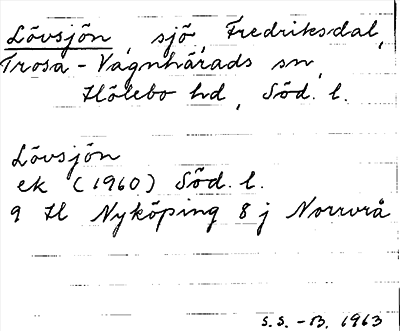 Lövsjön, sjö, Fredriksdal,
Trosa-Vagnhärads sn,
Hölebo hd, Söd. l.
Lövsjön
ek (1960) Söd. l.
9 H Nyköping 8 j Norrvrå
S.S. -B. 1963